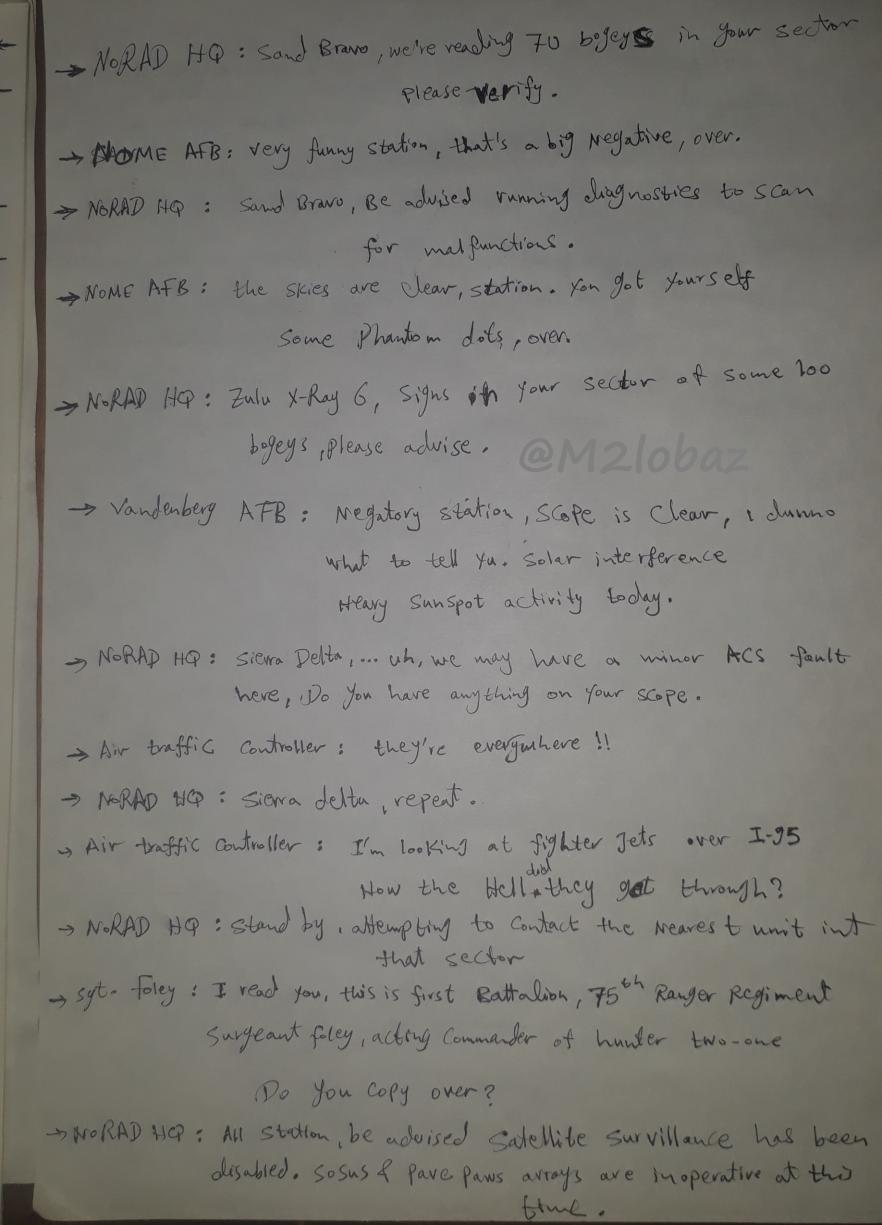 → NORAD HQ : Sand Bravo, we're reading 70 bogeys in your sector
please verify.
→ NOME AFB : very funny station, that's a big Negative, over.
→ NORAD HQ : Sand Bravo, Be advised running diagnosties to scan
for malfunctions.
→ NOME AFB : the skies are clear, station. You got yourself
some Phantom dots, over.
→ NORAD HQ : Zulu X-Ray 6, Signs in your sector of some 100
bogeys, please advise.
@M2lobaz
→ Vandenberg AFB : Negatory station, scope is clear, i dunno
what to tell yu. solar interference
Heavy sunspot activity today.
→ NORAD HQ : Sierra Delta, ... uh, we may have a minor ACS fault
here, Do you have anything on your scope.
→ Air traffic controller : they're everywhere !!
→ NORAD HQ : Sierra delta, repeat.
→ Air traffic controller : I'm looking at fighter Jets over I-95
How the Hell did they get through?
→ NORAD HQ : Stand by, attempting to contact the nearest unit int
that sector
→ Sgt. foley : I read you, this is first Battalion, 75th Ranger Regiment
Surgeant foley, acting Commander of hunter two-one
Do you copy over?
→ NORAD HQ : All station, be advised Satellite Survillance has been
disabled. SOSUS & Pave paws arrays are inoperative at this
time.